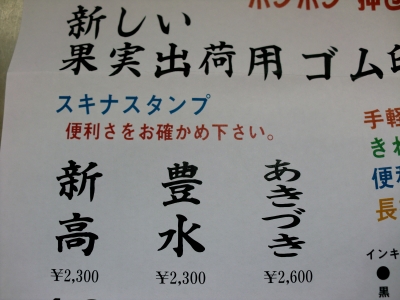 ポンポン 押
新しい
果実出荷用 ゴム
スキナスタンプ
便利さをお確かめ下さい。
手軽
きれ
便利
長
新高
豊水
あきづき
¥2,300
¥2,300
¥2,600
インキ
●
黒